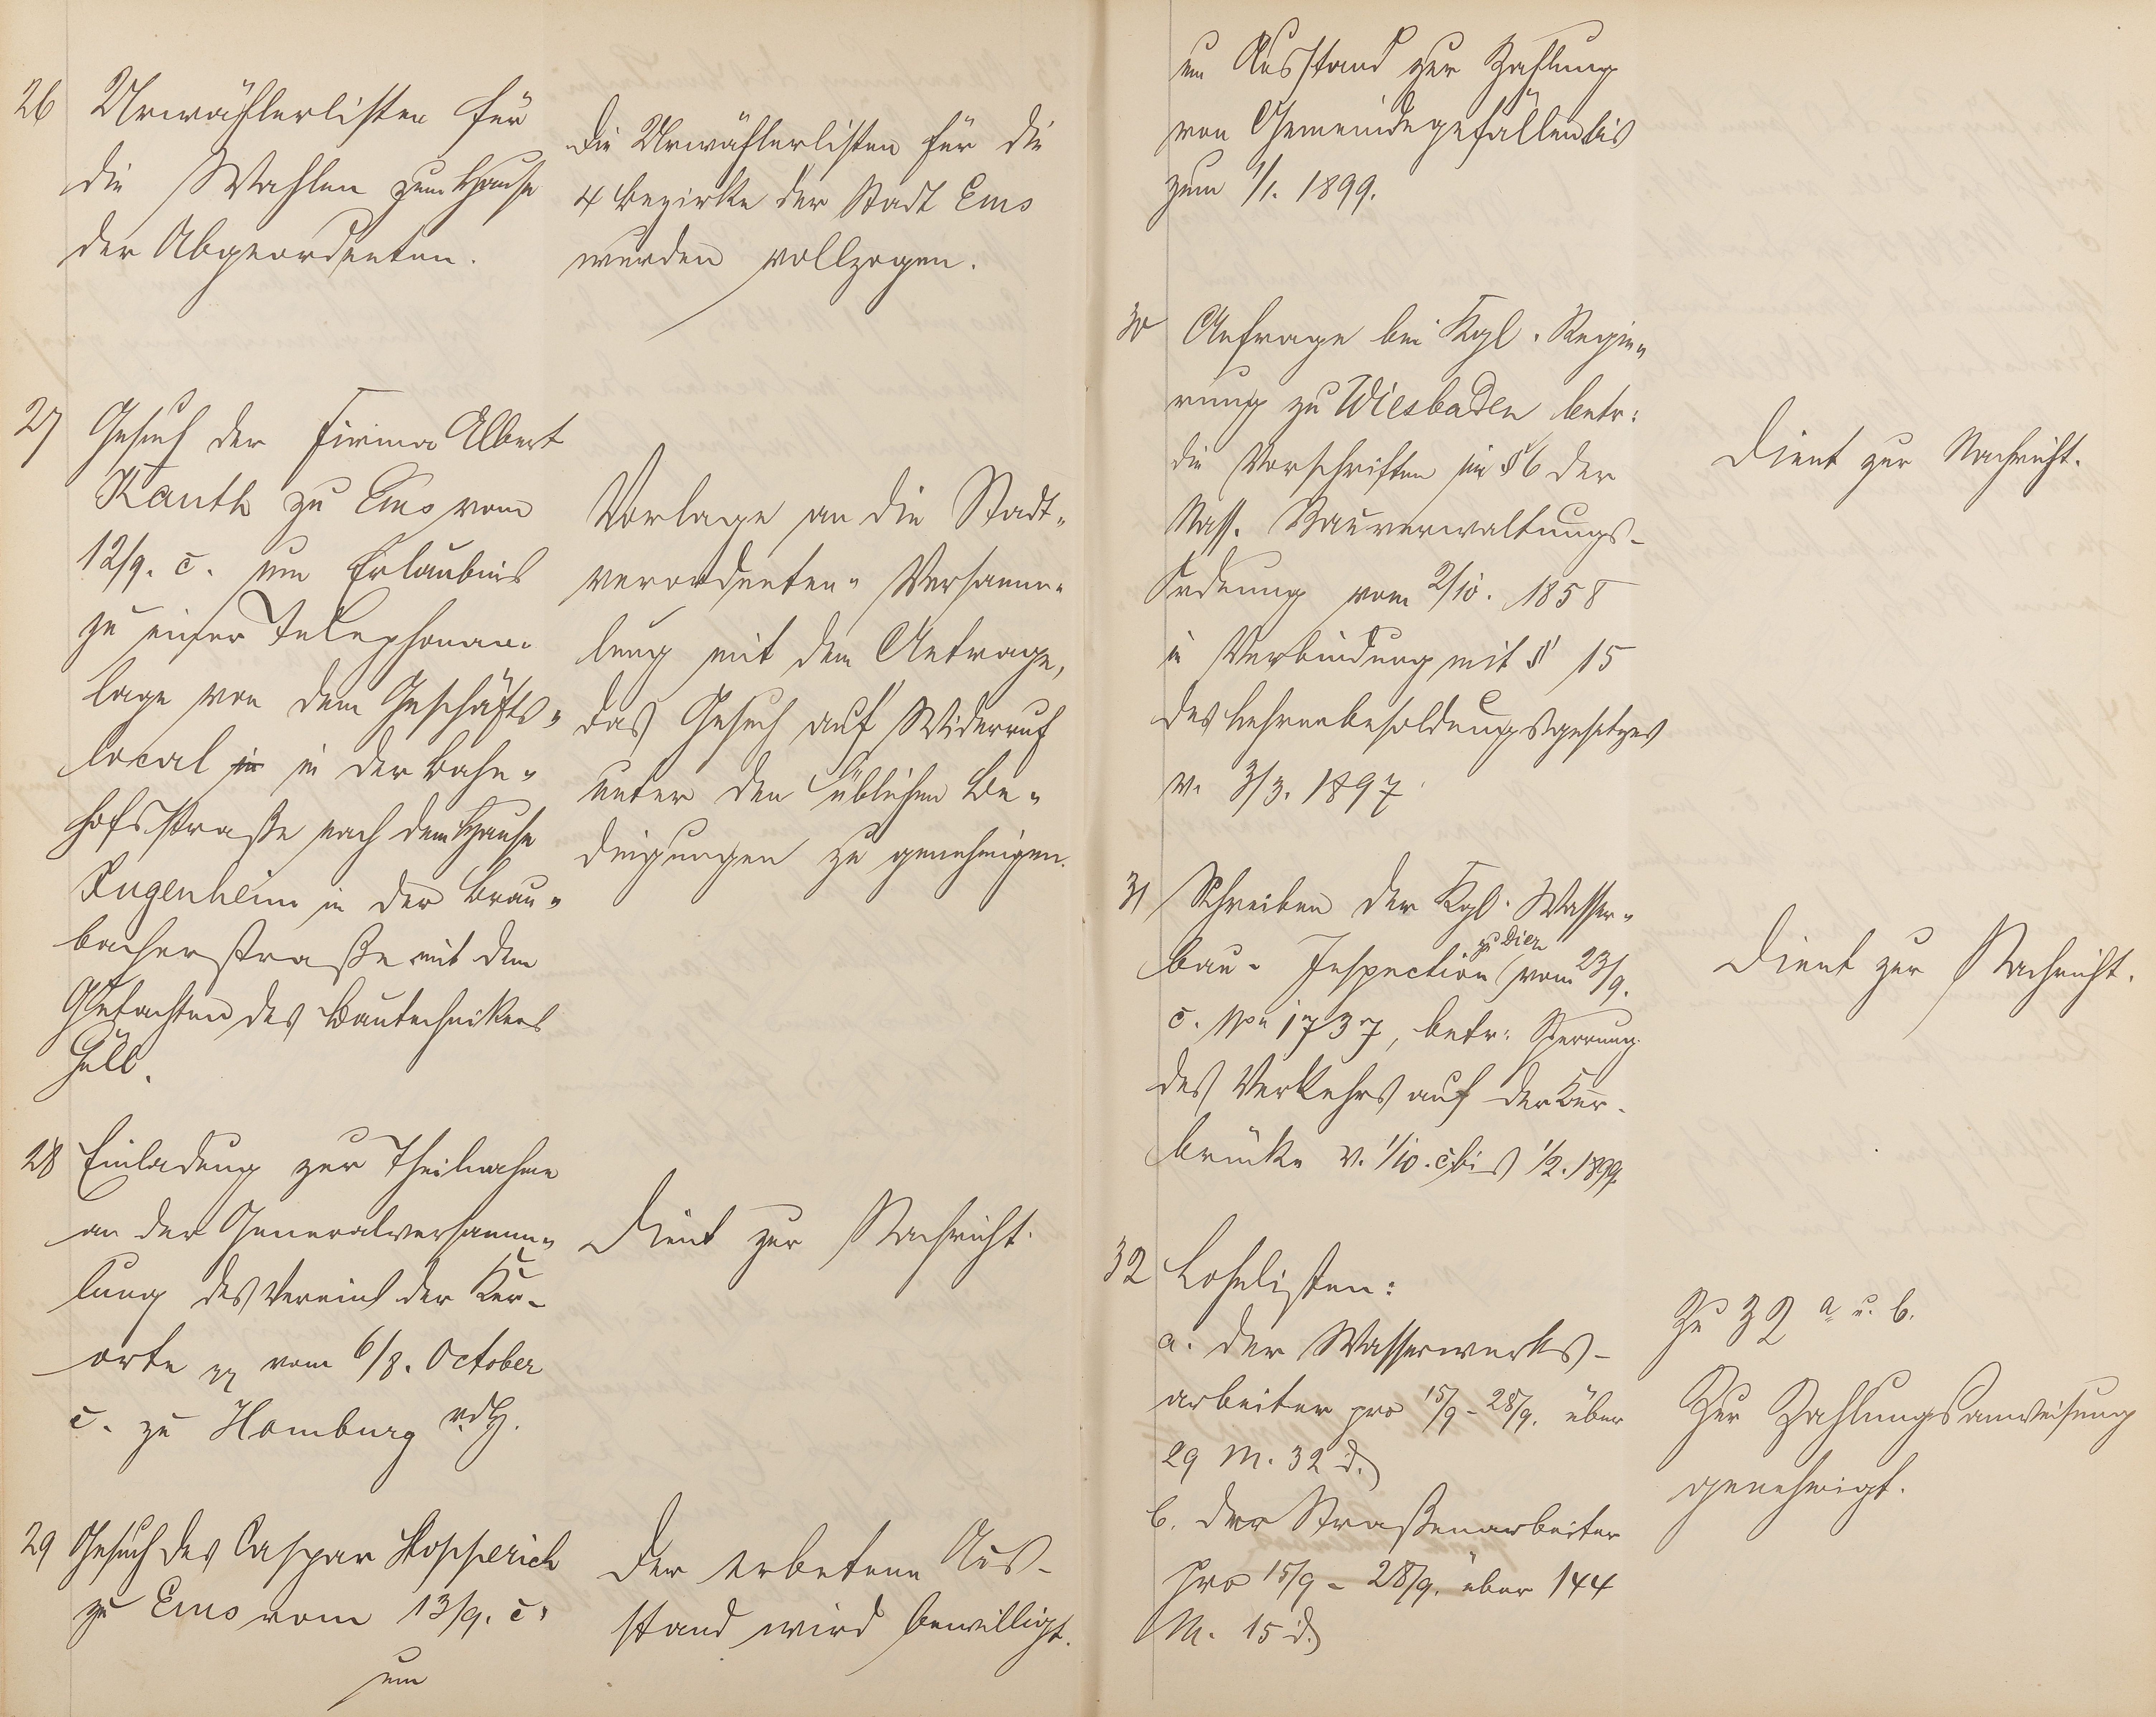 26 Urwählerlisten für
die Wahlen zum Hause
der Abgeordneten.
Die Urwählerlisten für die
4 Bezirke der Stadt Ems
wurden vollzogen.
27 Gesuch der Firma Albert
Kauth zu Ems vom
12/9. c. um Erlaubnis
zu einer Telephonan-
lage von dem Geschäfts-
local in in der Bahn-
hofsstraße nach dem Hause
Jugenheim in der Brau-
bacherstraße mit dem
Gutachten des Bautechnikers
Hüll.
Vorlage an die Stadt-
verordneten-Versamm-
lung mit dem Antrage,
das Gesuch auf Widerruf
unter den üblichen Be-
dingungen zu genehmigen.
28 Einladung zur Theilnahme
an der Generalversamm-
lung des Vereins der Kur-
orte vom 6/8. October
c. zu Homburg v.d.H.
Dient zur Nachricht.
29 Gesuch des Caspar Hopperich
zu Ems vom 13/9. c.
um
Der erbetene Aus-
stand wird bewilligt.
um Ausstand zur Zahlung
von Gemeindegefällen bis
zum 1/1. 1899.
30 Anfrage bei Kgl. Regie-
rung zu Wiesbaden betr:
die Vorschriften in § 6 der
Nass. Bauverwaltungs-
Ordnung vom 2/10. 1858
in Verbindung mit § 15
des Lehrerbesoldungsgesetzes
v. 3/3. 1897
Dient zur Nachricht.
31 Schreiben der Kgl. Wasser-
bau-Inspection zu Diez vom 23/9.
c. No 1737, betr: Sperrung
des Verkehrs auf der Kur-
brücke v. 1/10. c. bis 1/2. 1899.
Dient zur Nachricht.
32 Lohnlisten:
a. der Wasserwerks-
arbeiter pro 15/9 - 28/9. über
29 M. 32 d.
b. der Straßenarbeiter
pro 15/9 - 28/9. über 144
M. 15 d.
Zu 32 a u. b.
Zur Zahlungsanweisung
genehmigt.